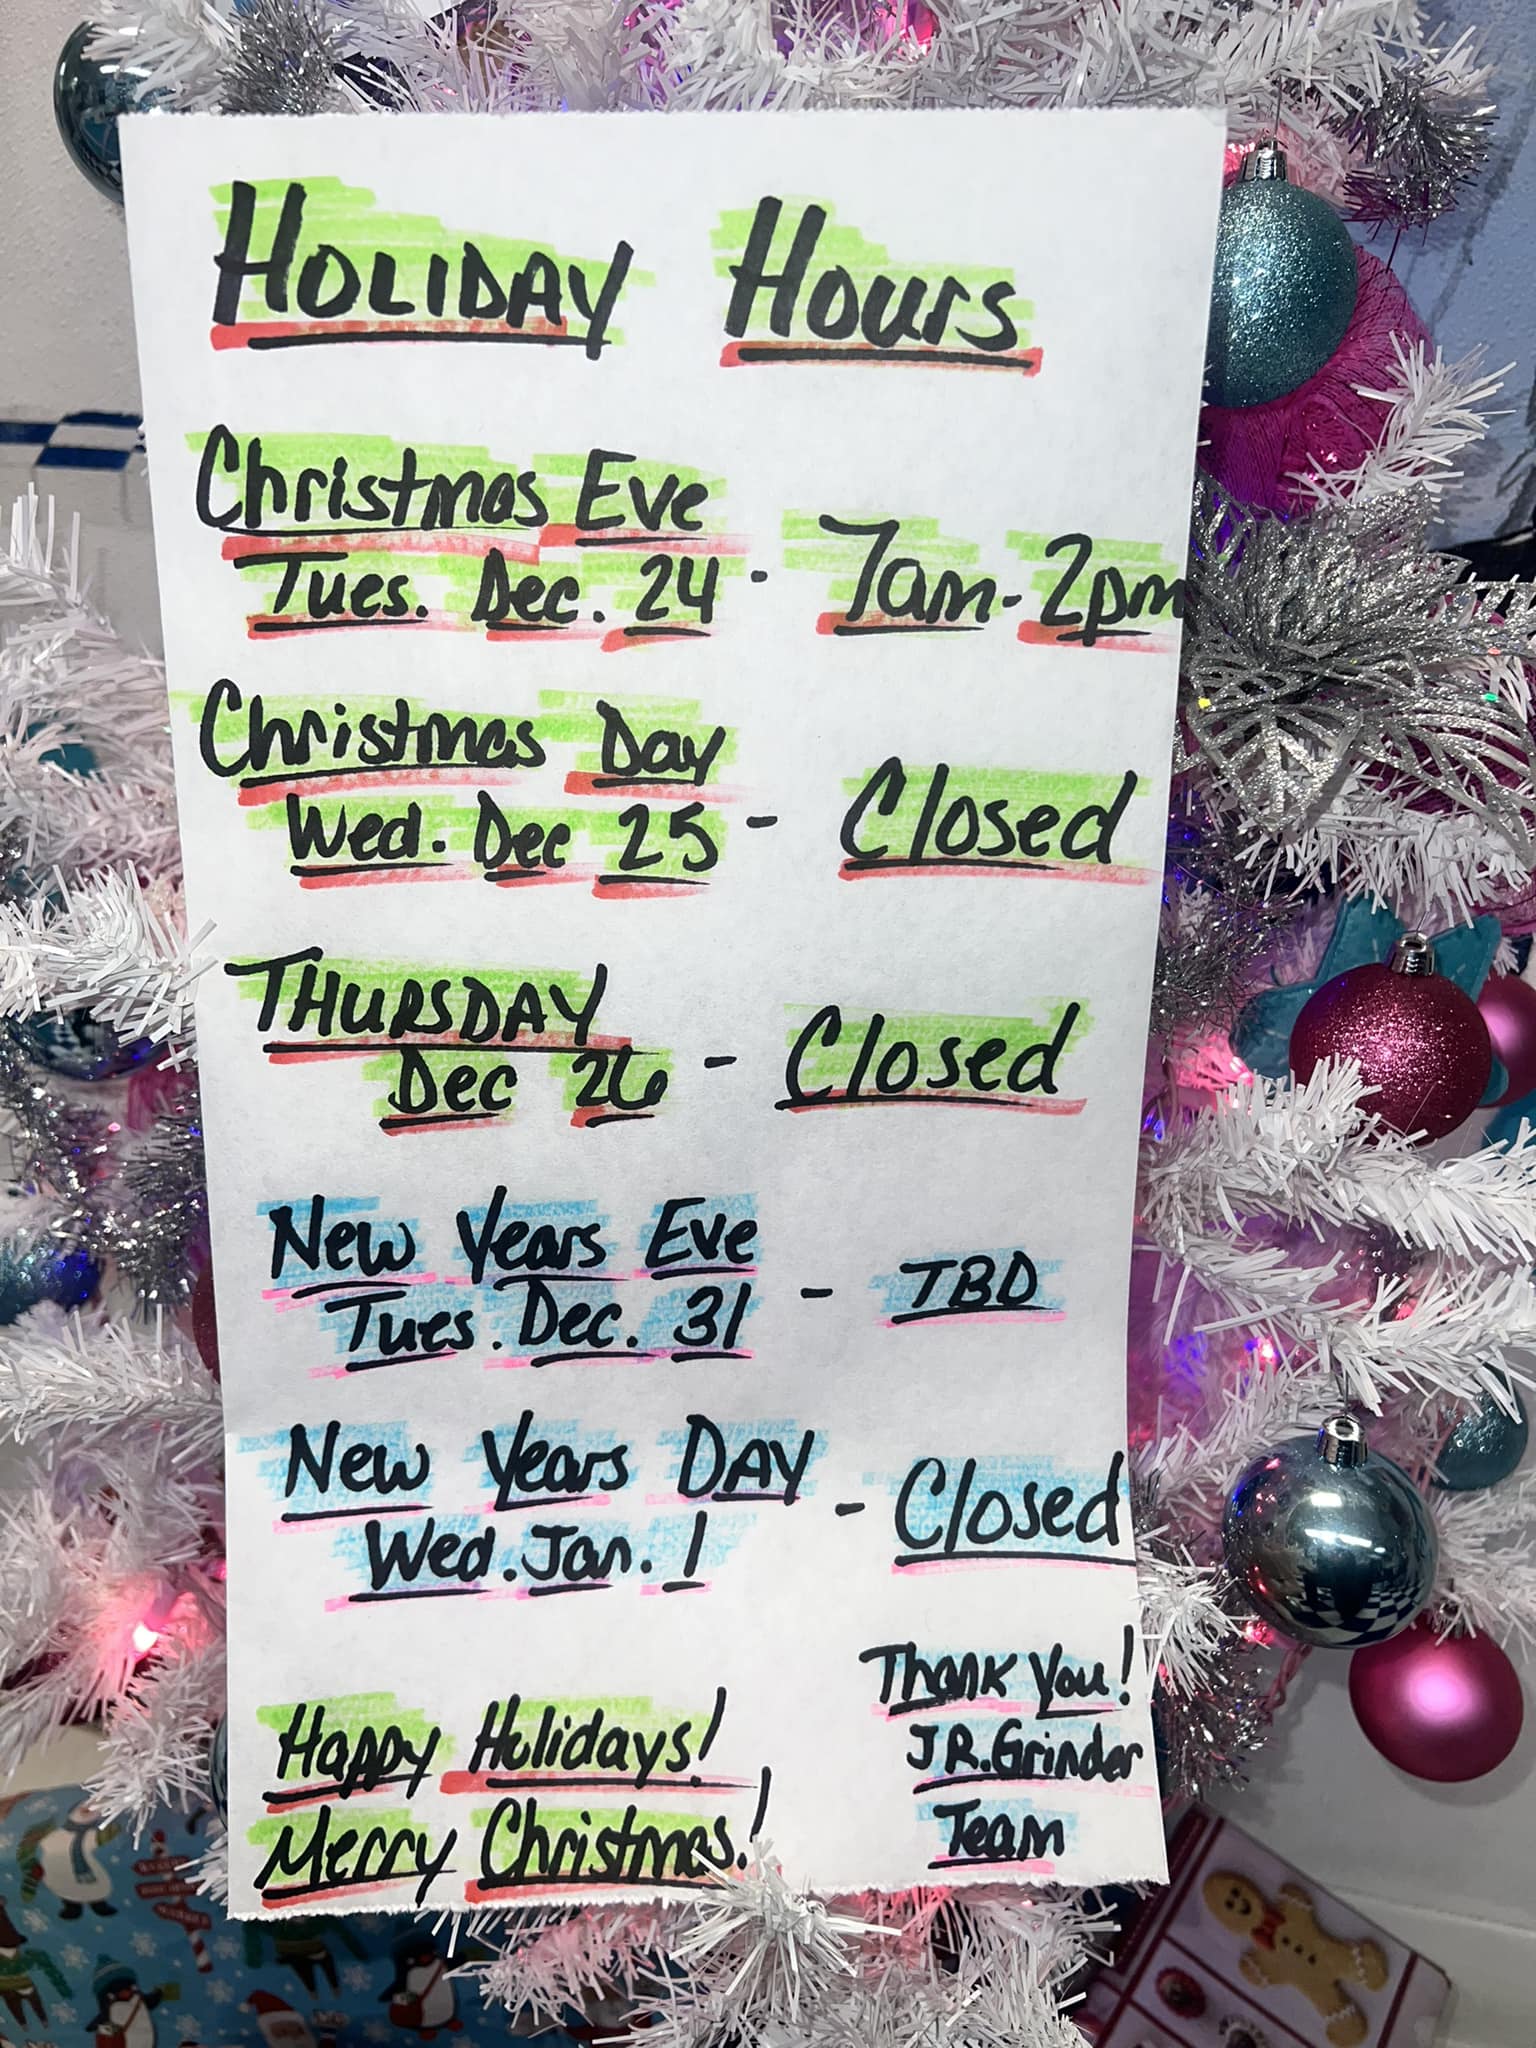 HOLIDAY Hours
Christmas Eve
Tues. Dec. 24 - 7am - 2pm
Christmas Day
Wed. Dec 25 - Closed
THURSDAY
Dec 26 - Closed
New Years Eve
Tues. Dec. 31 - TBD
New Years DAY
Wed. Jan. 1 - Closed
Happy Holidays!
Merry Christmas!
Thank You!
JR.Grinder
Team